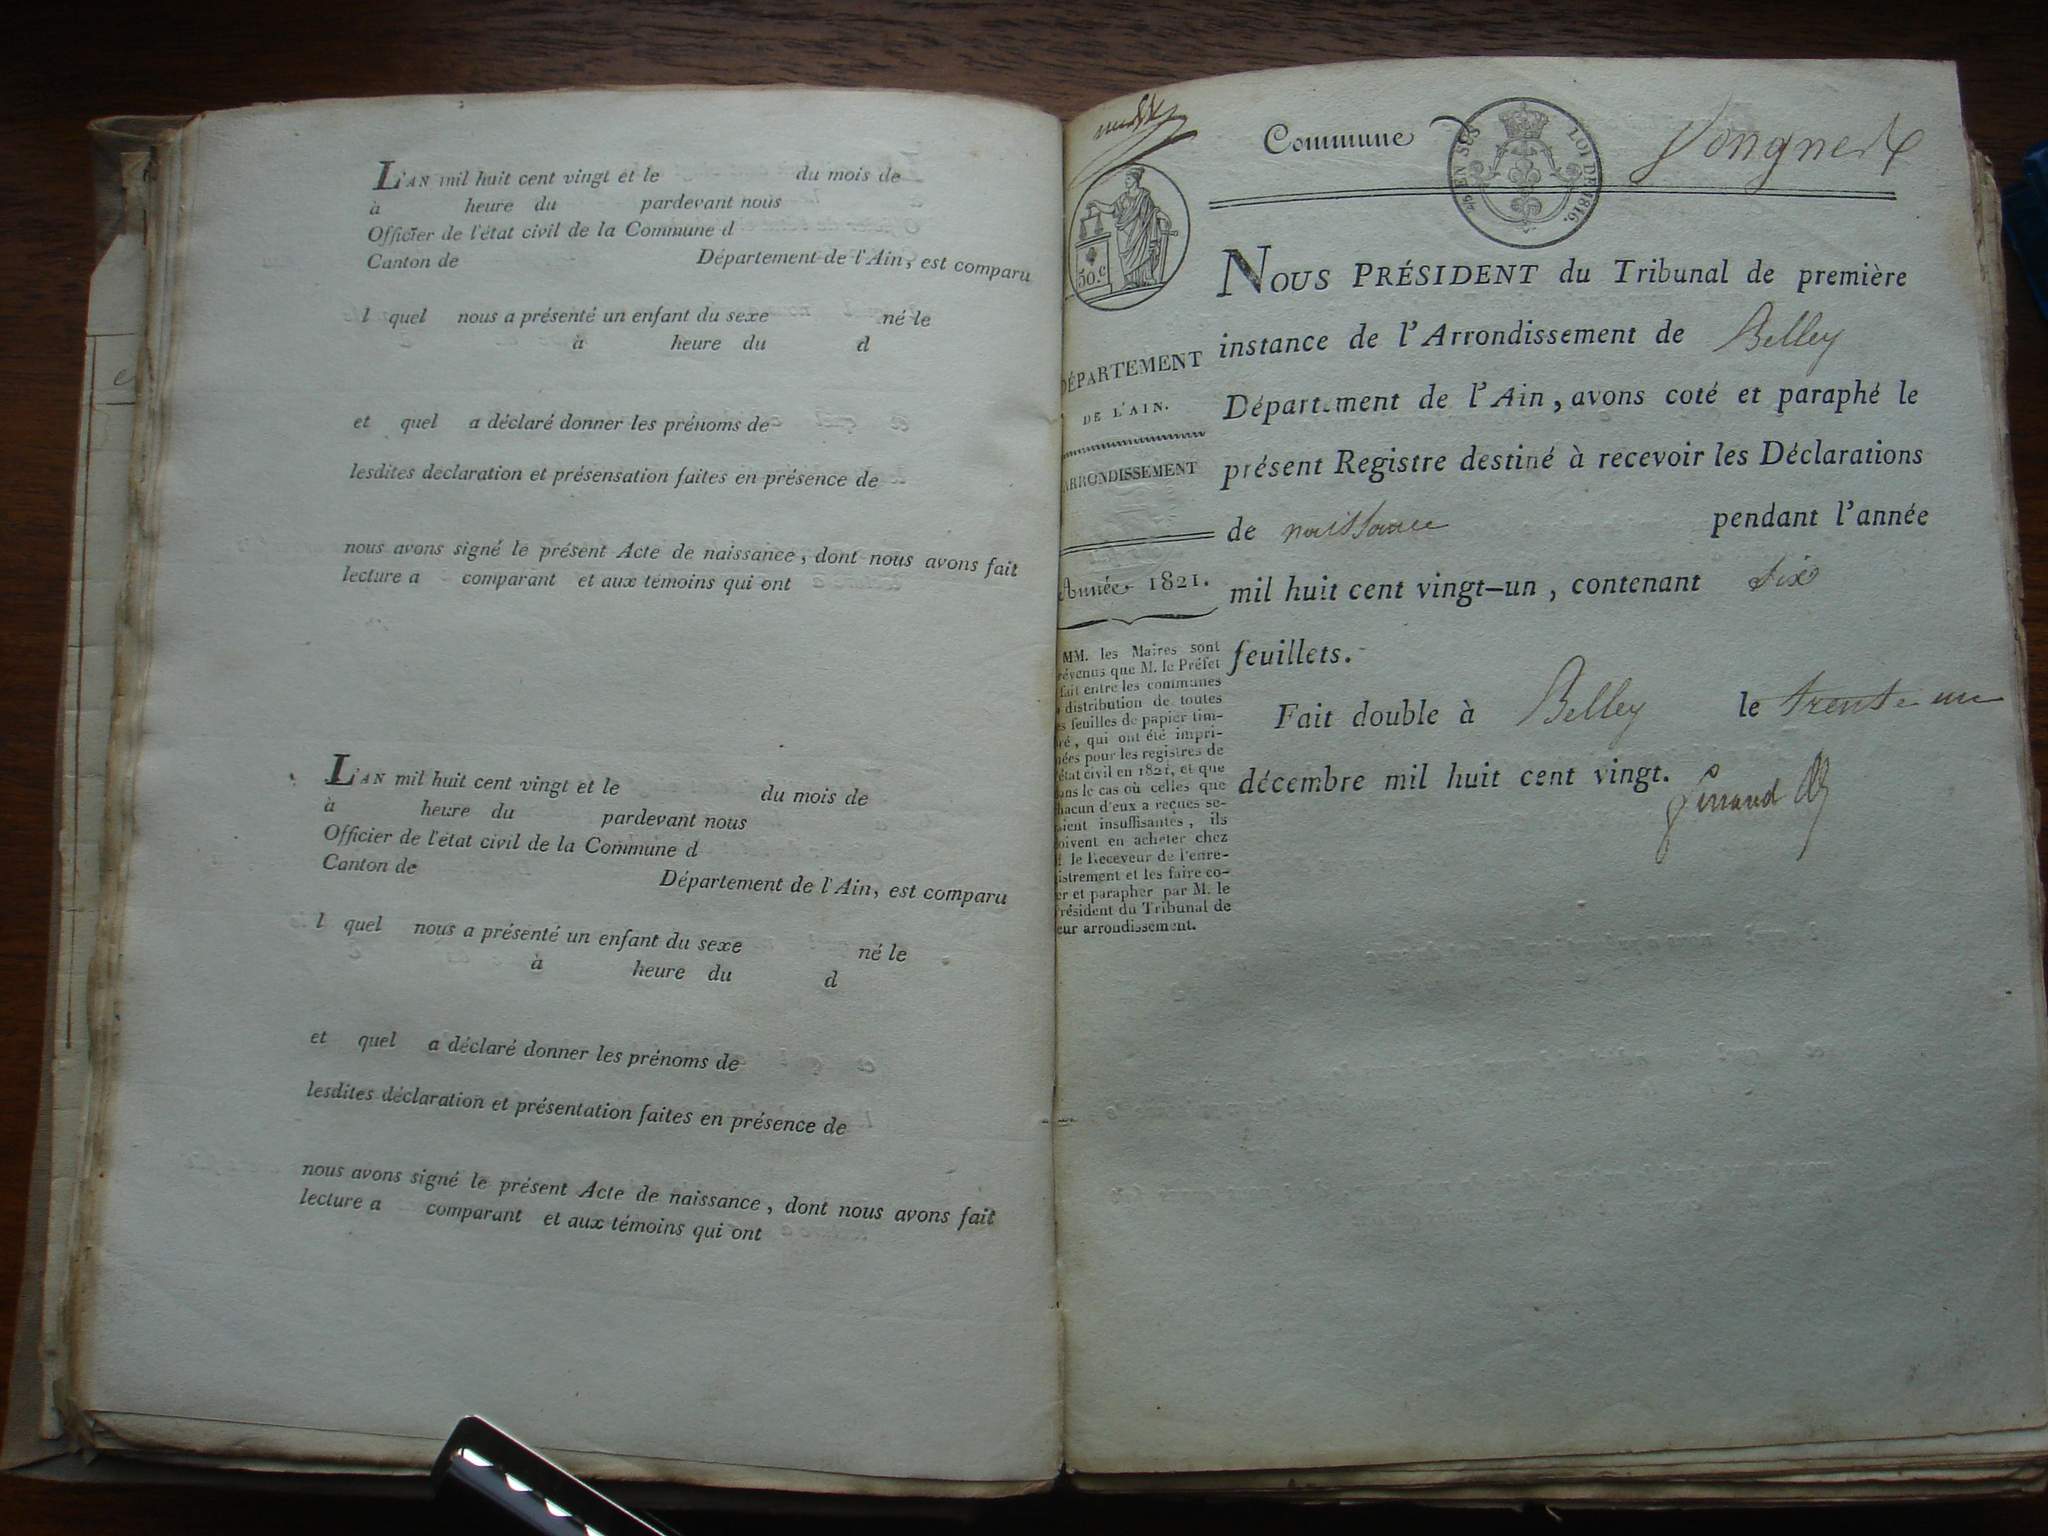 L'AN mil huit cent vingt et le du mois de
à heure du pardevant nous
Officier de l'état civil de la Commune d
Canton de Département de l'Ain, est comparu
l quel nous a présenté un enfant du sexe né le
à heure du d
et quel a déclaré donner les prénoms de
lesdites déclaration et présensation faites en présence de
nous avons signé le présent Acte de naissance, dont nous avons fait
lecture a comparant et aux témoins qui ont
L'AN mil huit cent vingt et le du mois de
à heure du pardevant nous
Officier de l'état civil de la Commune d
Canton de Département de l'Ain, est comparu
l quel nous a présenté un enfant du sexe né le
à heure du d
et quel a déclaré donner les prénoms de
lesdites déclaration et présentation faites en présence de
nous avons signé le présent Acte de naissance, dont nous avons fait
lecture a comparant et aux témoins qui ont
Commune
EN SUS LOI DE 1816.
50.c
DÉPARTEMENT
DE L'AIN.
ARRONDISSEMENT
Année 1821.
MM. les Maires sont
révenus que M. le Préfet
fait entre les communes
distribution de toutes
es feuilles de papier tim-
ré, qui ont été impri-
mées pour les registres de
état civil en 1821, et que
ans le cas où celles que
hacun d'eux a reçues se-
aient insuffisantes, ils
oivent en acheter chez
le Receveur de l'enre-
istrement et les faire co-
er et parapher par M. le
résident du Tribunal de
eur arrondissement.
NOUS PRÉSIDENT du Tribunal de première
instance de l'Arrondissement de Belley
Département de l'Ain, avons coté et paraphé le
présent Registre destiné à recevoir les Déclarations
de naissance pendant l'année
mil huit cent vingt-un, contenant six
feuillets.
Fait double à Belley le trente un
décembre mil huit cent vingt.